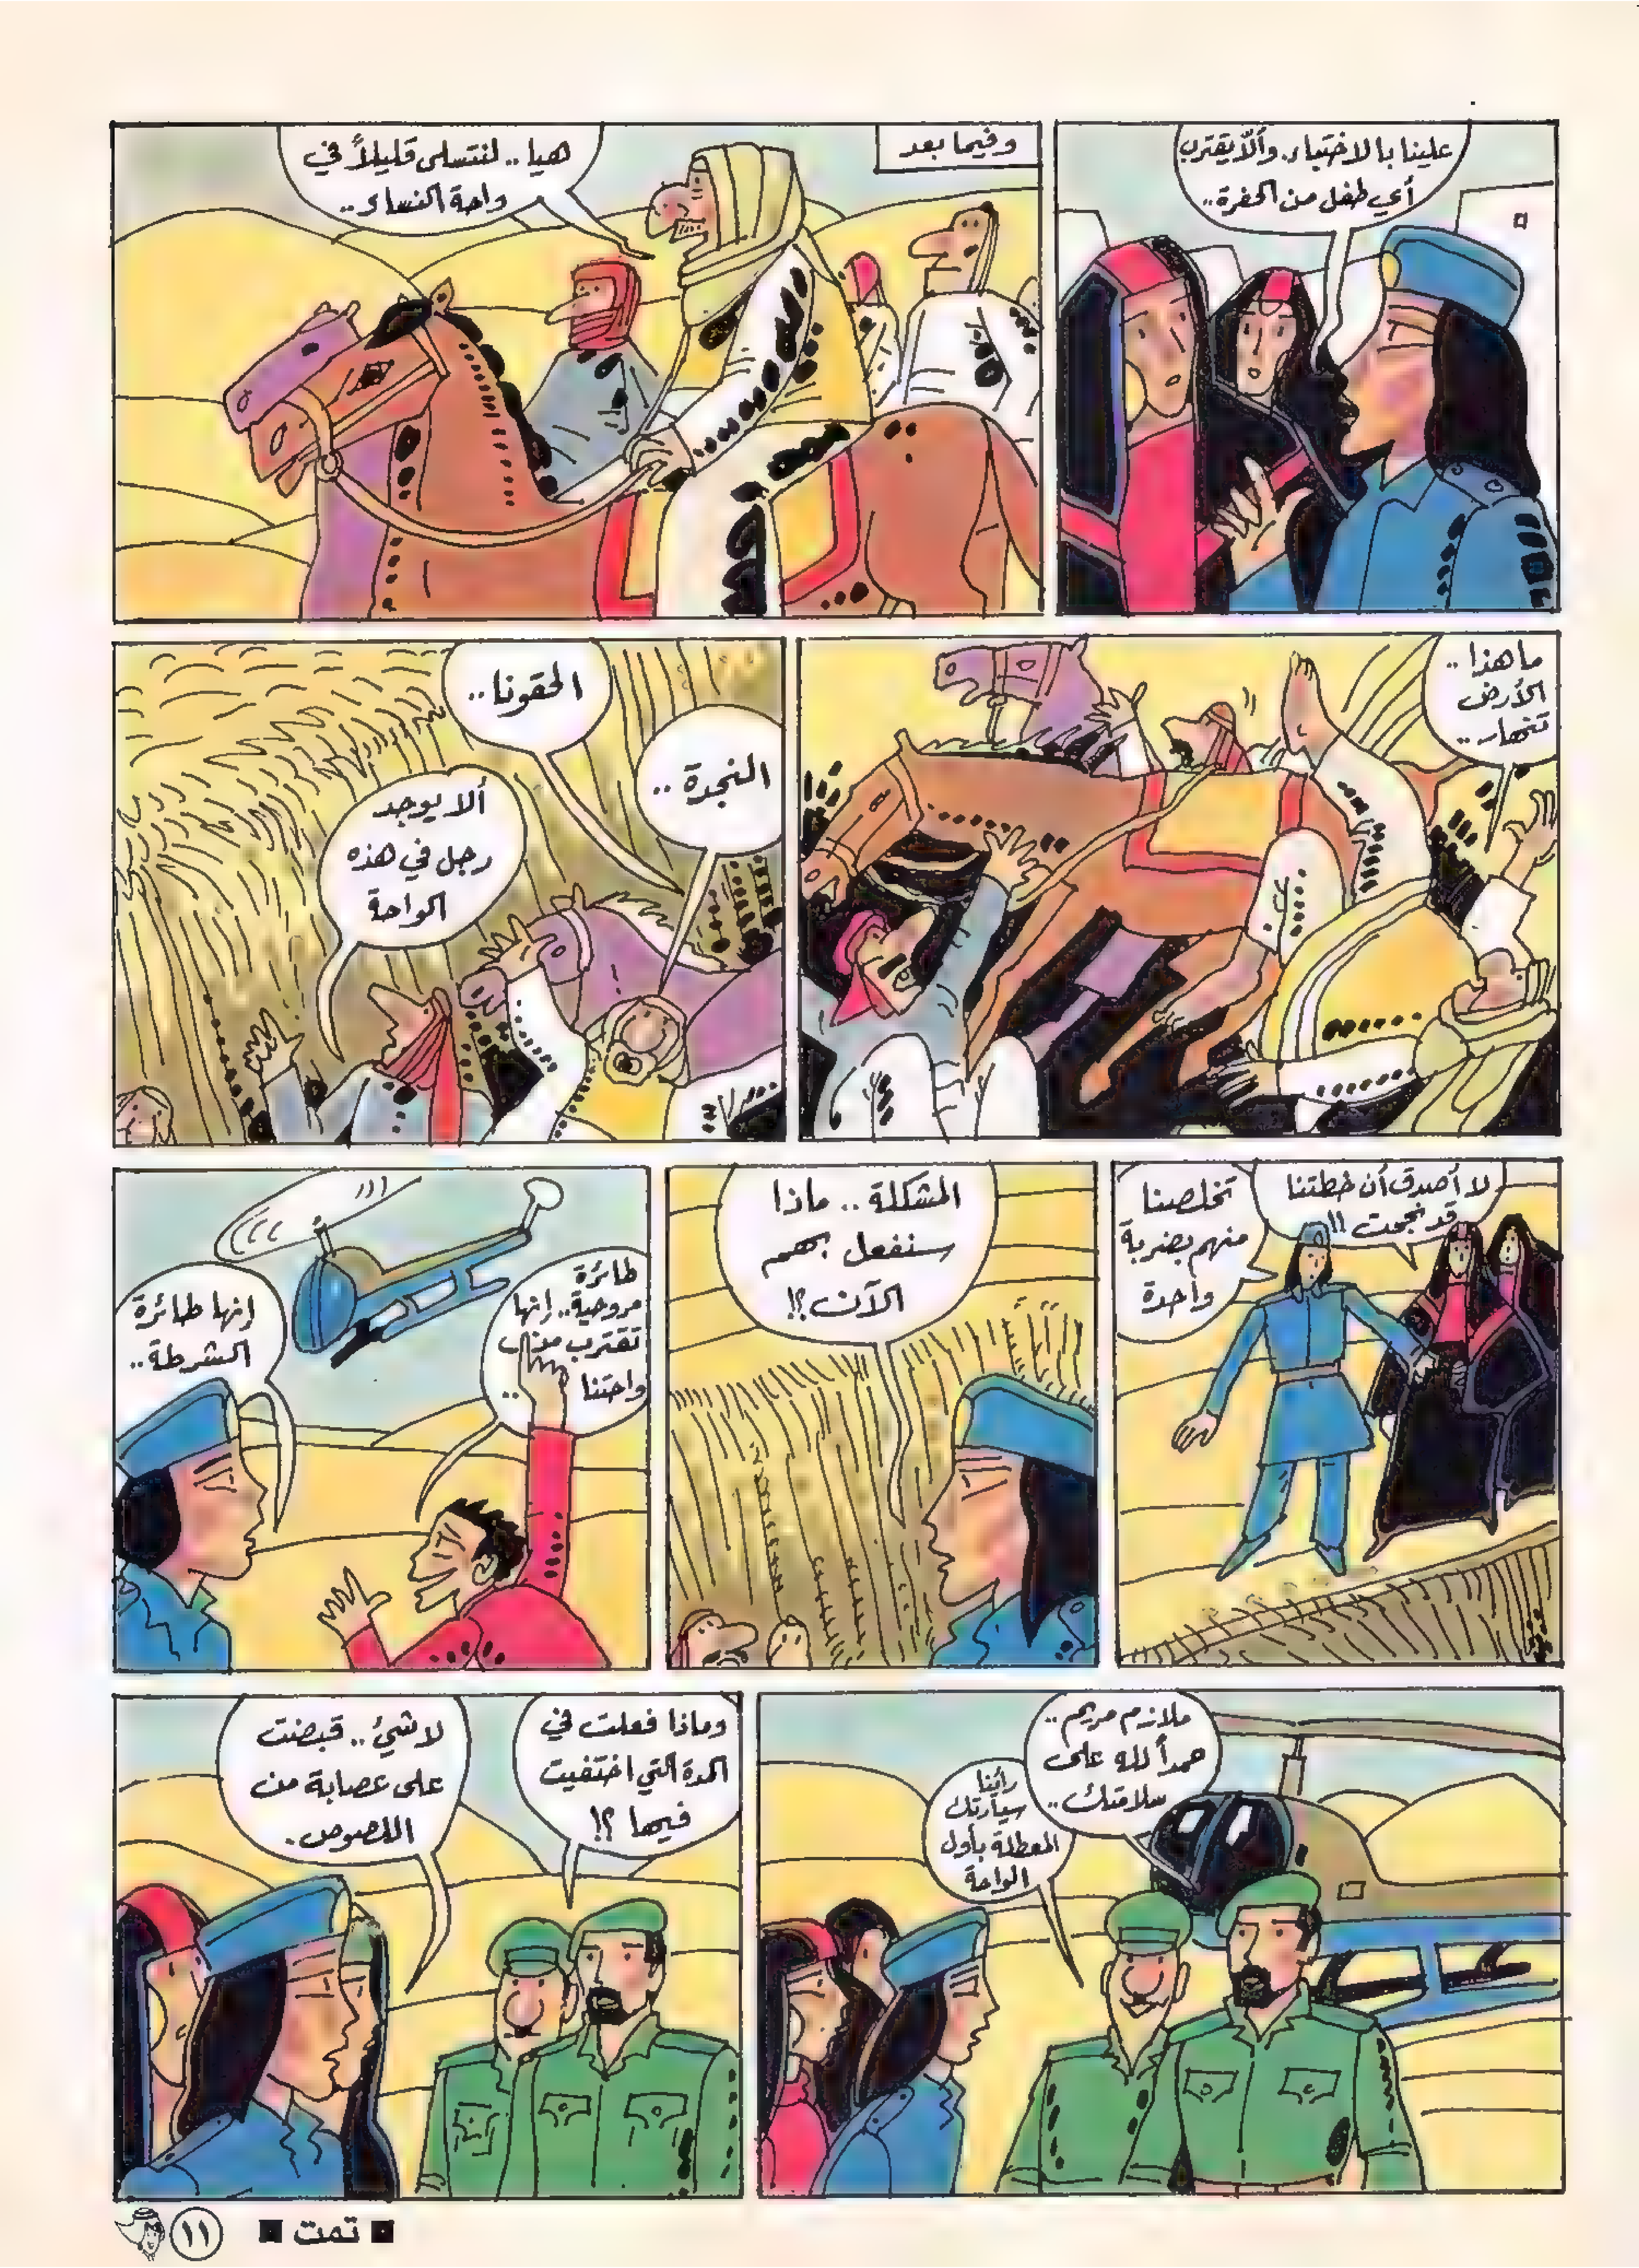 علينا بالاختباء. وألّا يقترب
أي طفل من الحفرة..
وفيما بعد
هيا.. لنتسلى قليلاً في
واحة النساء..
ما هذا..
الأرض
تنهار..
النجدة..
الحقونا..
ألا يوجد
رجل في هذه
الواحة
لا أصدق أن خطتنا
قد نجحت !!
تخلصنا
منهم بضربة
واحدة
المشكلة.. ماذا
سنفعل بهم
الآن؟!
طائرة
مروحية.. إنها
تقترب من
واحتنا ..
إنها طائرة
الشرطة..
ملازم مريم..
حمداً لله على
سلامتك..
رأينا
سيارتك
المعطلة بأول
الواحة
وماذا فعلت في
المدة التي اختفيت
فيها ؟!
لا شيئ.. قبضت
على عصابة من
اللصوص.
■ تمت ■
١١